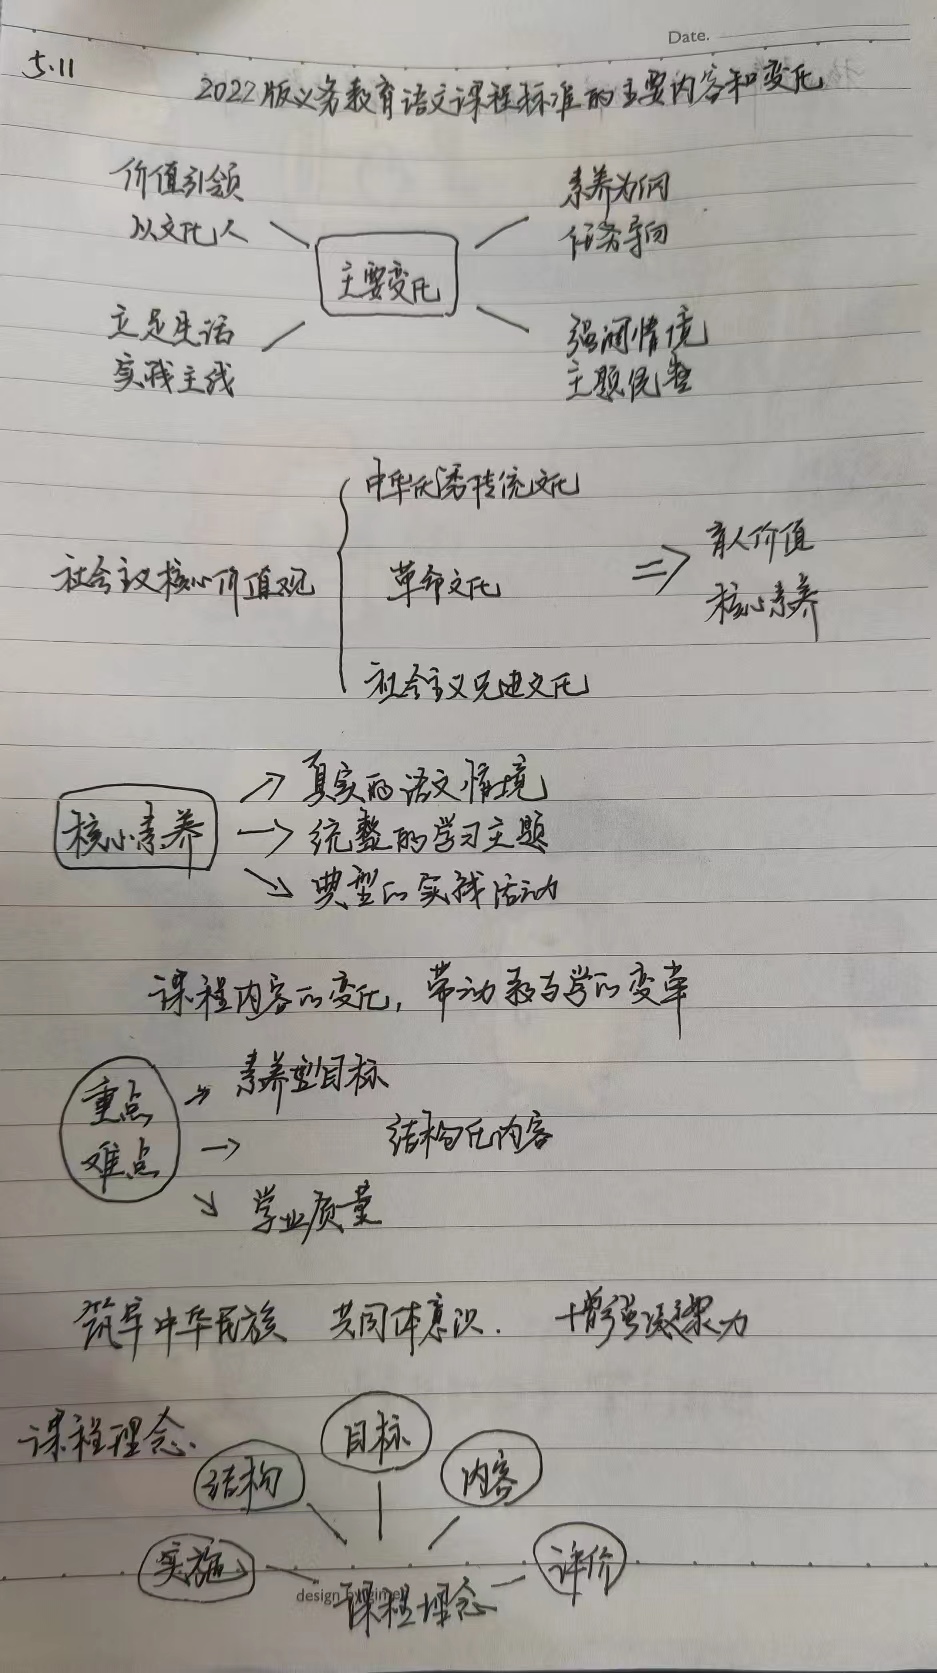 Date.
5.11
2022版义务教育语文课程标准的主要内容和变化
价值引领
以文化人
素养为纲
任务导向
主要变化
立足生活
实践主线
强调情境
主题统整
中华优秀传统文化
社会主义核心价值观
革命文化
育人价值
核心素养
社会主义先进文化
核心素养
真实的语文情境
统整的学习主题
典型的实践活动
课程内容的变化，带动教与学的变革
重点
难点
素养型目标
结构化内容
学业质量
筑牢中华民族 共同体意识. 增强凝聚力
课程理念.
结构
目标
内容
实施
评价
课程理念
design by